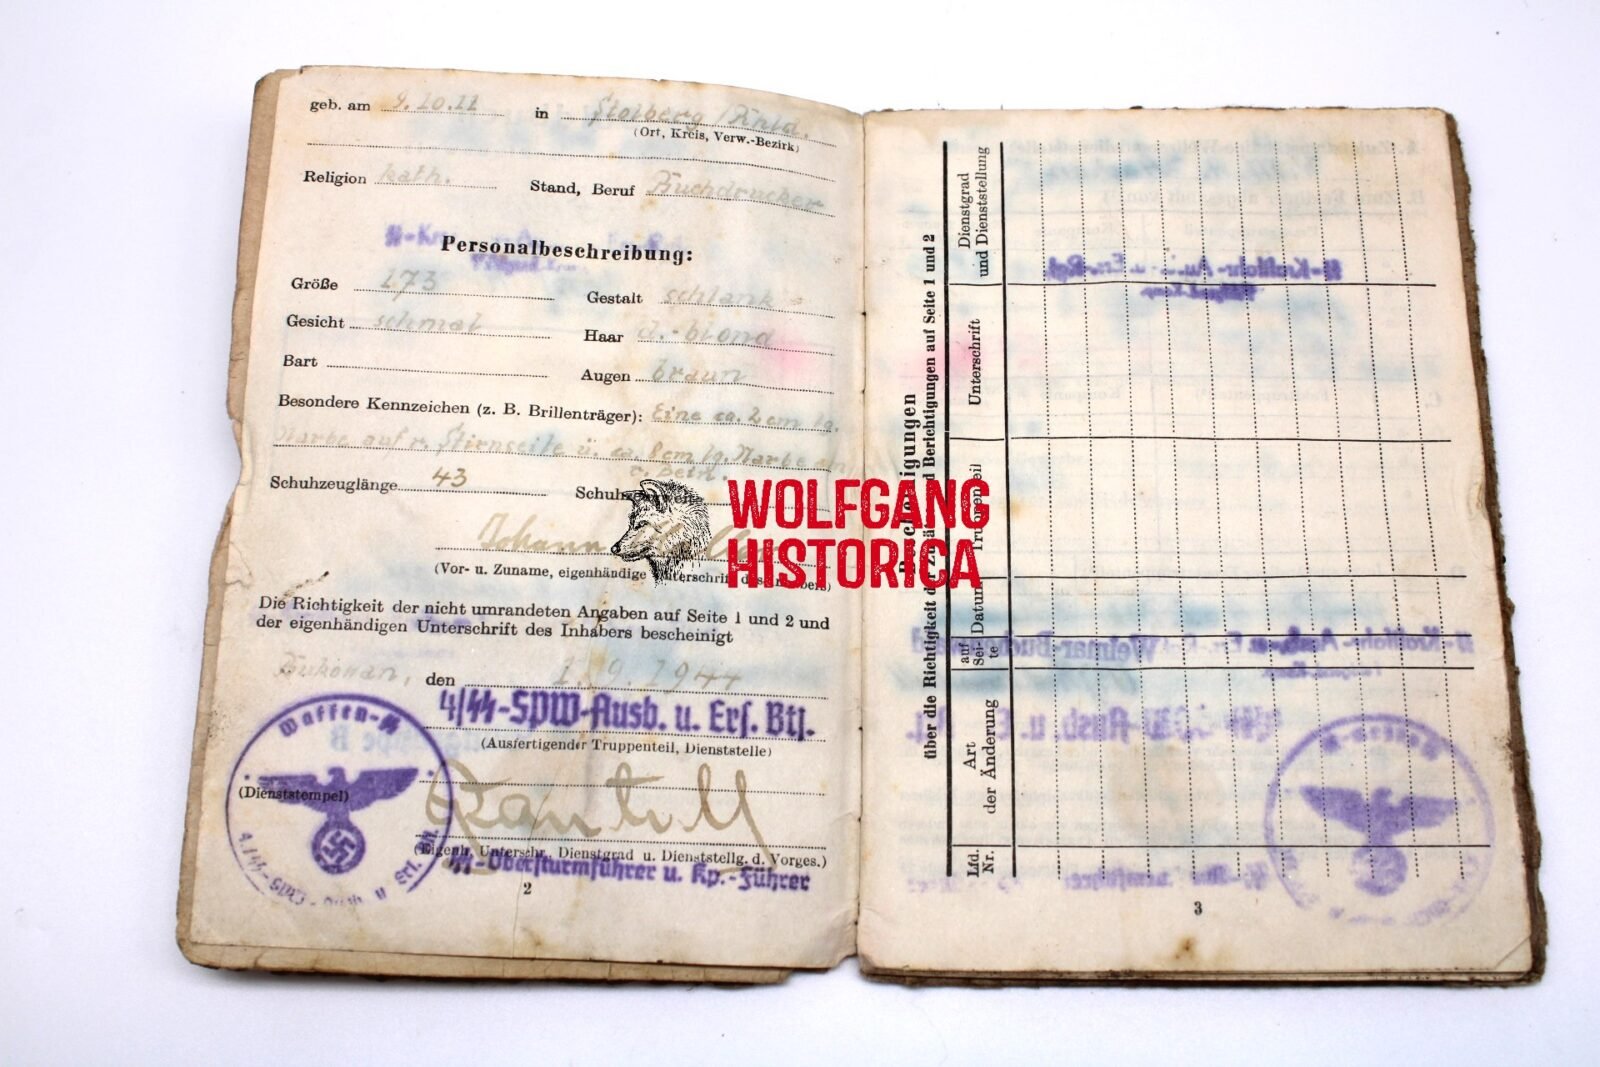 geb. am 9.10.11 in Stolberg/Rhld.
(Ort, Kreis, Verw.-Bezirk)
Religion kath. Stand, Beruf Buchdrucker
Personalbeschreibung:
Größe 173 Gestalt schlank
Gesicht schmal Haar d.-blond
Bart Augen braun
Besondere Kennzeichen (z. B. Brillenträger): Eine ca. 2 cm lg.
Narbe auf r. Stirnseite u. ca. 8cm lg. Narbe am
r. Bein.
Schuhzeuglänge 43
Johann
(Vor- u. Zuname, eigenhändige Unterschrift des Inhabers)
Die Richtigkeit der nicht umrandeten Angaben auf Seite 1 und 2 und
der eigenhändigen Unterschrift des Inhabers bescheinigt
den 1.9.1944
4/SS-SPW-Ausb. u. Ers. Btl.
(Ausfertigender Truppenteil, Dienststelle)
Waffen-SS
(Dienststempel)
4./SS-SPW-Ausb. u. Ers. Btl.
(Eigenh. Unterschr., Dienstgrad u. Dienststellg. d. Vorges.)
SS-Obersturmführer u. Kp.-Führer
2
WOLFGANG
HISTORICA
Bescheinigungen
über die Richtigkeit der Zusätze und Berichtigungen auf Seite 1 und 2
Lfd.
Nr.
Art
der Änderung
auf
Sei-
te
Datum
Truppenteil
Unterschrift
Dienstgrad
und Dienststellung
3